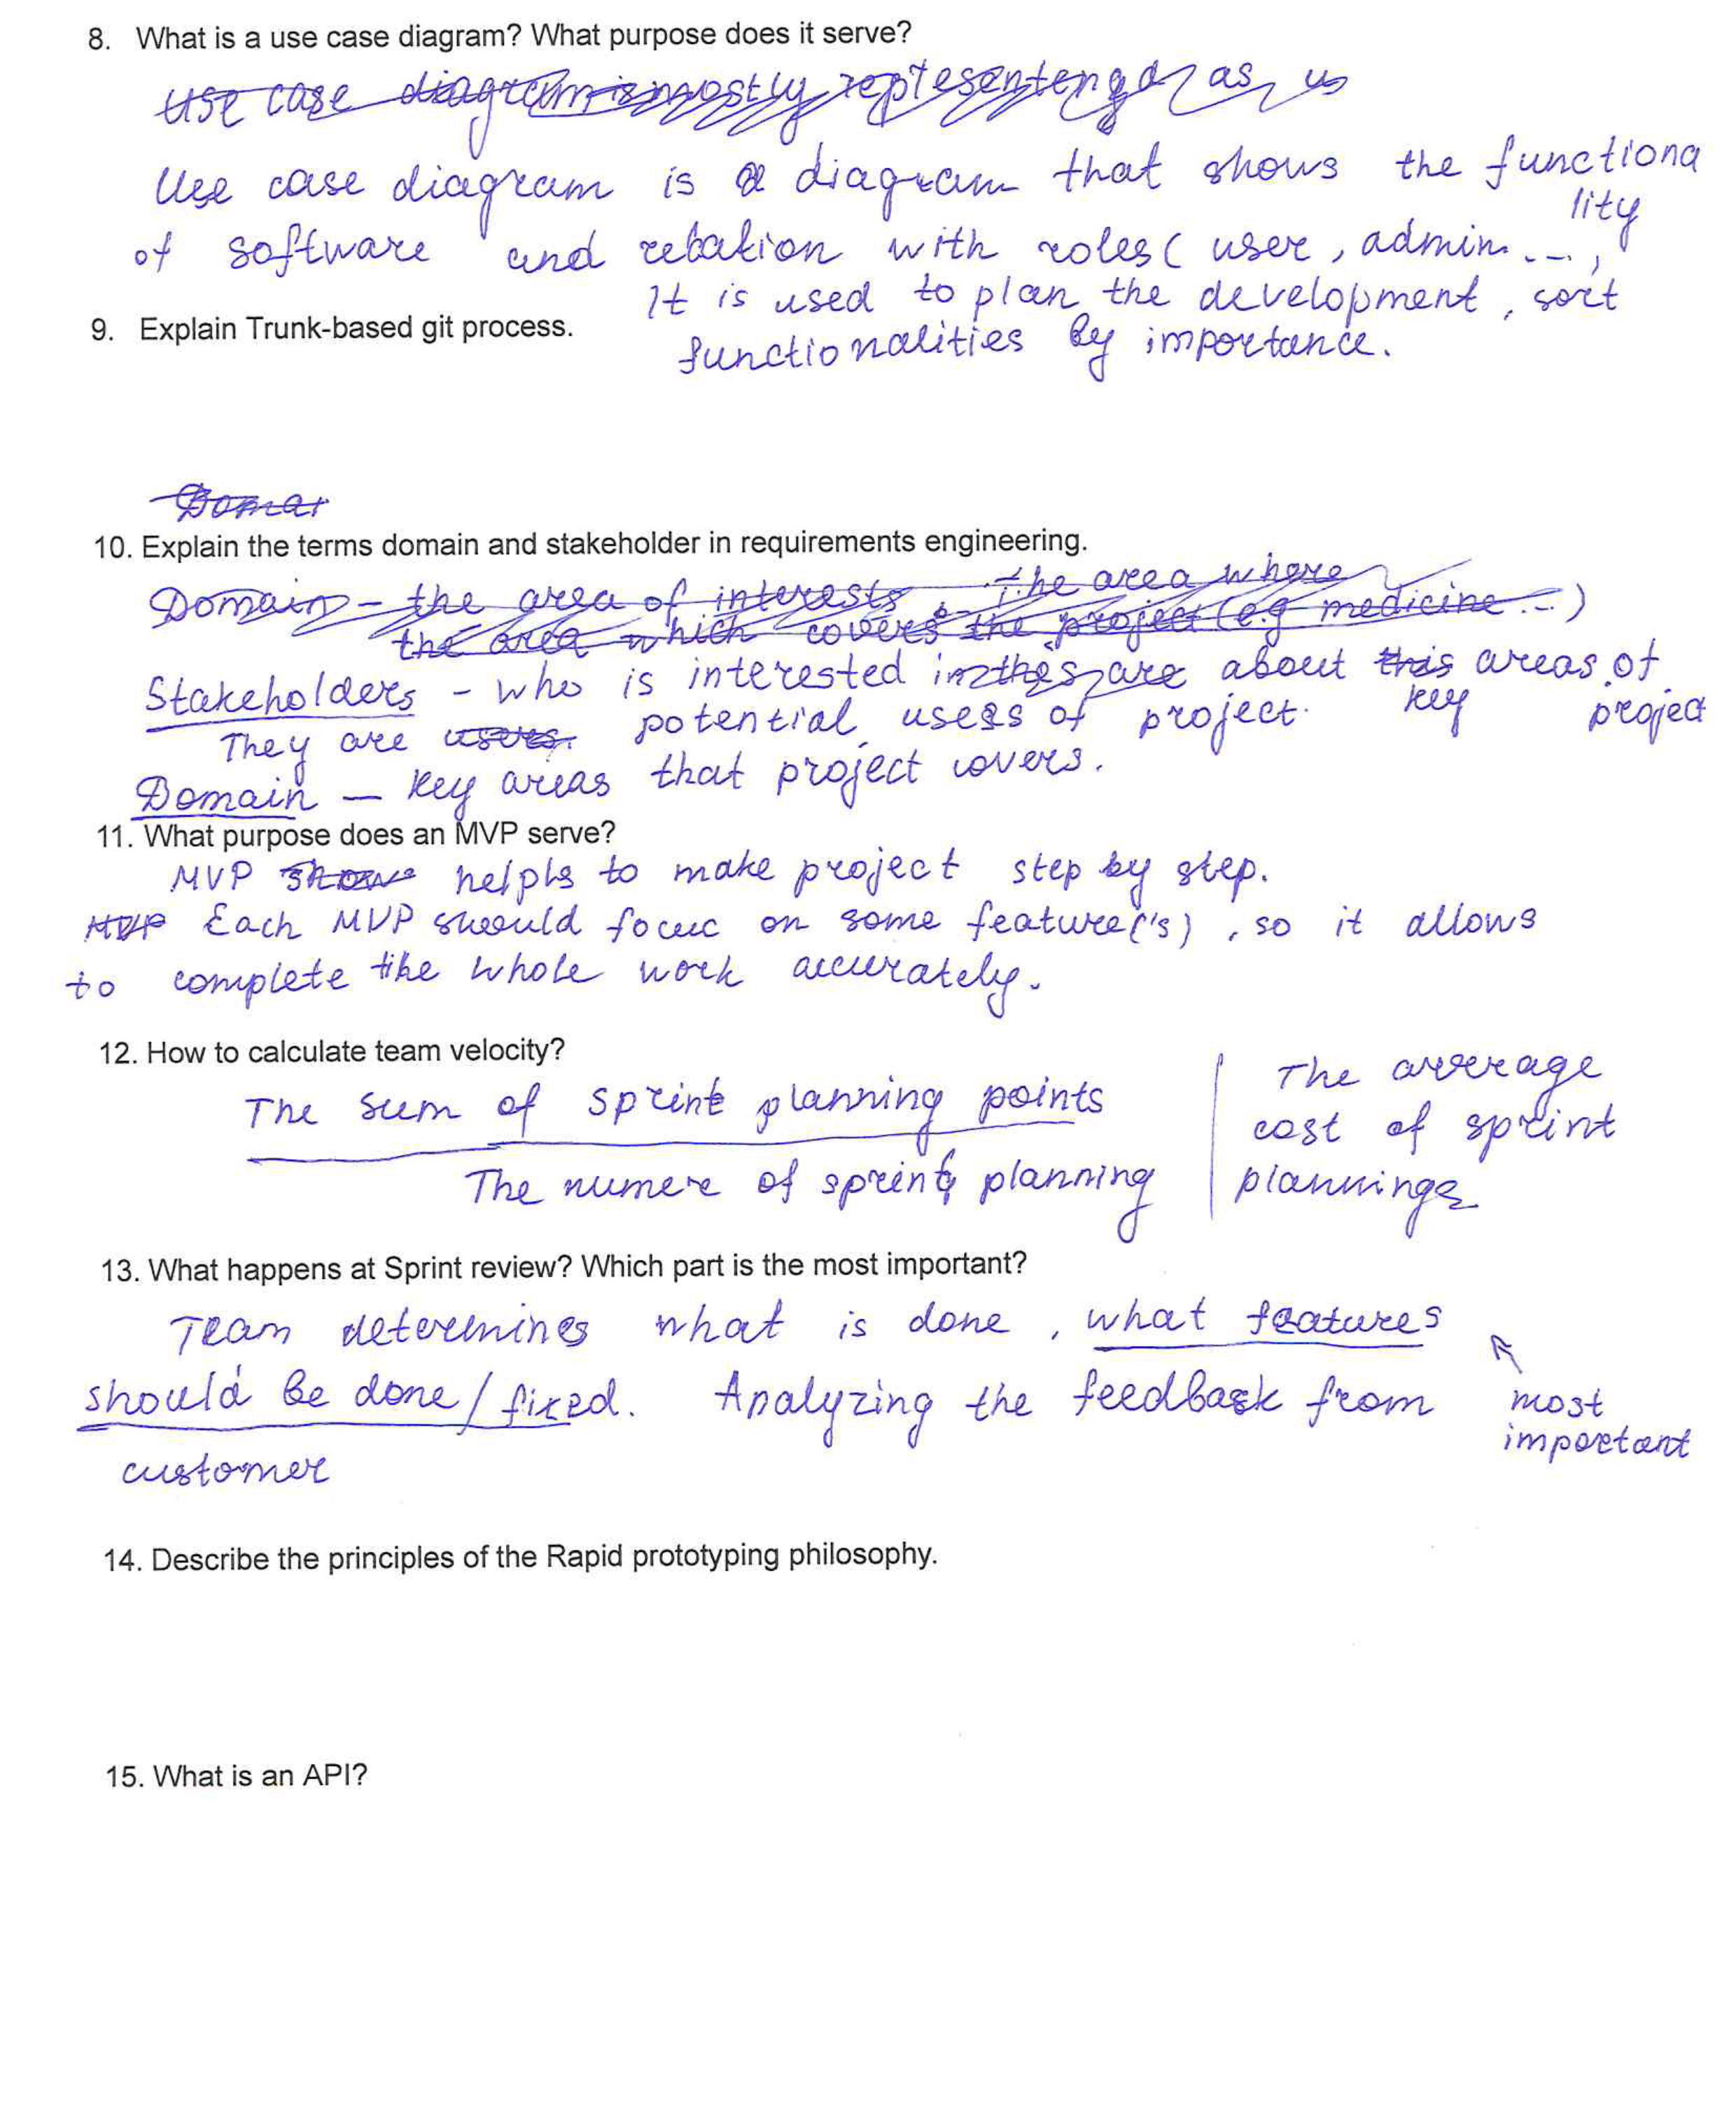 8. What is a use case diagram? What purpose does it serve?
Use case diagram is mostly representengd as us
Use case diagram is a diagram that shows the functiona
lity
of software and relation with roles ( user, admin ...,
It is used to plan the development, sort
9. Explain Trunk-based git process.
functionalities by importance.
Domai
10. Explain the terms domain and stakeholder in requirements engineering.
Domain - the area of interests, the area where
the area which covers the project (e.g medicine ...)
Stakeholders - who is interested in about this areas of
key project
They are users. potential users of project.
Domain - key areas that project covers.
11. What purpose does an MVP serve?
MVP shows helphs to make project step by step.
MVP Each MVP should focus on some feature('s), so it allows
to complete the whole work accurately.
12. How to calculate team velocity?
The sum of sprint planning points
The numere of sprint planning
The average
cost of sprint
plannings
13. What happens at Sprint review? Which part is the most important?
Team determines what is done, what features
should be done / fixed. Analyzing the feedback from
customer
most
important
14. Describe the principles of the Rapid prototyping philosophy.
15. What is an API?